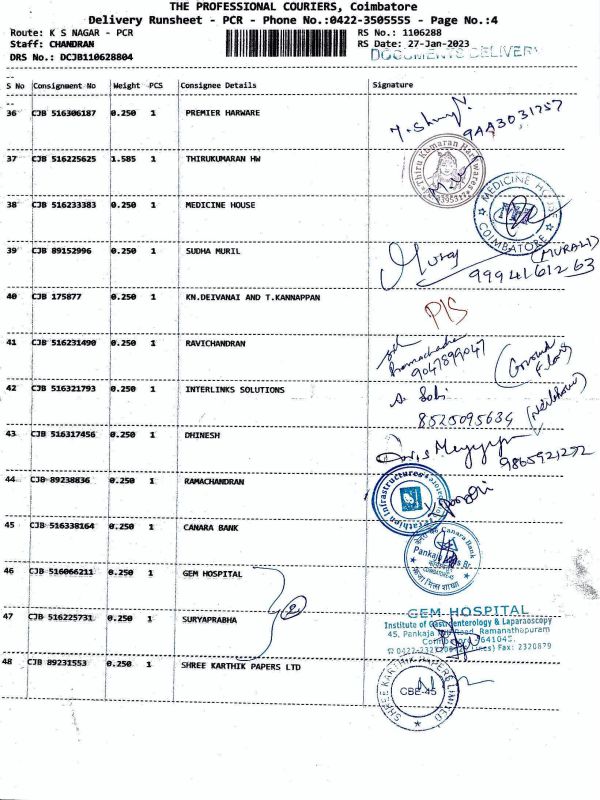 THE PROFESSIONAL COURIERS, Coimbatore
Delivery Runsheet - PCR - Phone No.:0422-3505555 - Page No.:4
Route: K S NAGAR - PCR
RS No.: 1106288
Staff: CHANDRAN
RS Date: 27-Jan-2023
DRS No.: DCJB110628804
DOCUMENTS DELIVERY
S No Consignment No Weight PCS Consignee Details Signature
36 CJB 516306187 0.250 1 PREMIER HARWARE
37 CJB 516225625 1.585 1 THIRUKUMARAN HW
Thiru Kumaran Hardwares
38 CJB 516233383 0.250 1 MEDICINE HOUSE
MEDICINE HOUSE
COIMBATORE
39 CJB 89152996 0.250 1 SUDHA MURIL
(MURALI)
9994161263
40 CJB 175877 0.250 1 KN.DEIVANAI AND T.KANNAPPAN
PIS
41 CJB 516231490 0.250 1 RAVICHANDRAN
9047899047
42 CJB 516321793 0.250 1 INTERLINKS SOLUTIONS
8525095634
43 CJB 516317456 0.250 1 DHINESH
44 CJB 89238836 0.250 1 RAMACHANDRAN
Infrastructures
45 CJB 516338164 0.250 1 CANARA BANK
Canara Bank
46 CJB 516066211 0.250 1 GEM HOSPITAL
2
47 CJB 516225731 0.250 1 SURYAPRABHA
GEM HOSPITAL
Institute of Gastroenterology & Laparoscopy
45, Pankaja Mill Road, Ramanathapuram
Fax: 2320879
48 CJB 89231553 0.250 1 SHREE KARTHIK PAPERS LTD
SHREE KARTHIK PAPERS LIMITED
CBE-45